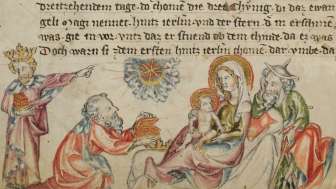 dreitzehendem tage. do chomē die drey chunig. di daz ewan
geli magi nennet. hintz ierlm. vnd der stern d᷑ in erschinē
was. gie in vor. vntz daz er stuend ob dem chinde. da er was
Doch warn si zdem ersten hintz ierlm chomē. dar vmbe. da